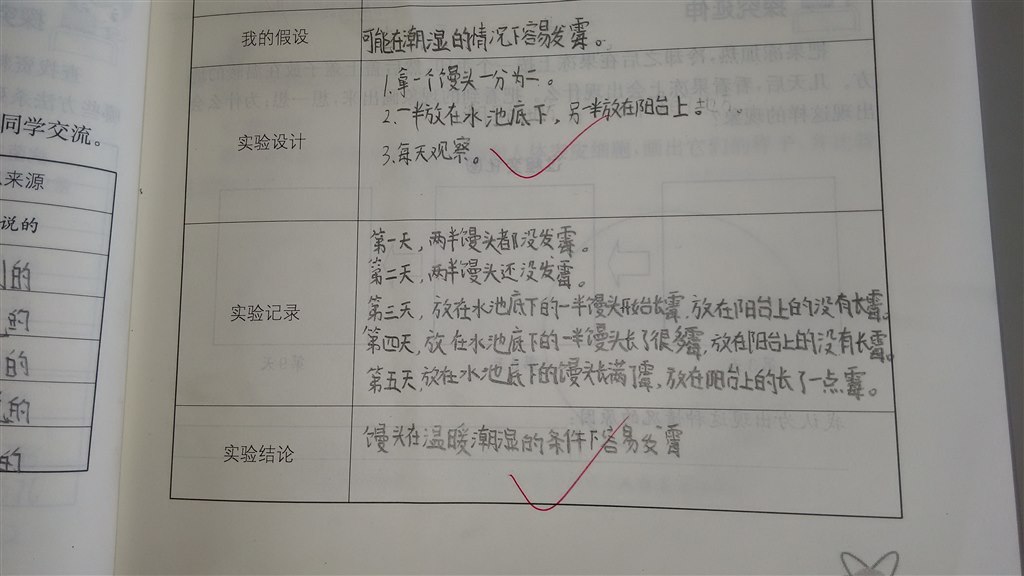 我的假设
可能在潮湿的情况下容易发霉。
实验设计
1.拿一个馒头一分为二。
2.一半放在水池底下,另一半放在阳台上。
3.每天观察。
实验记录
第一天,两半馒头都没发霉。
第二天,两半馒头还没发霉。
第三天,放在水池底下的一半馒头开始长霉,放在阳台上的没有长霉。
第四天,放在水池底下的一半馒头长了很多霉,放在阳台上的没有长霉。
第五天放在水池底下的馒头长满了霉,放在阳台上的长了一点霉。
实验结论
馒头在温暖潮湿的条件下容易发霉
同学交流。
来源
说的
的
的
的
的
的